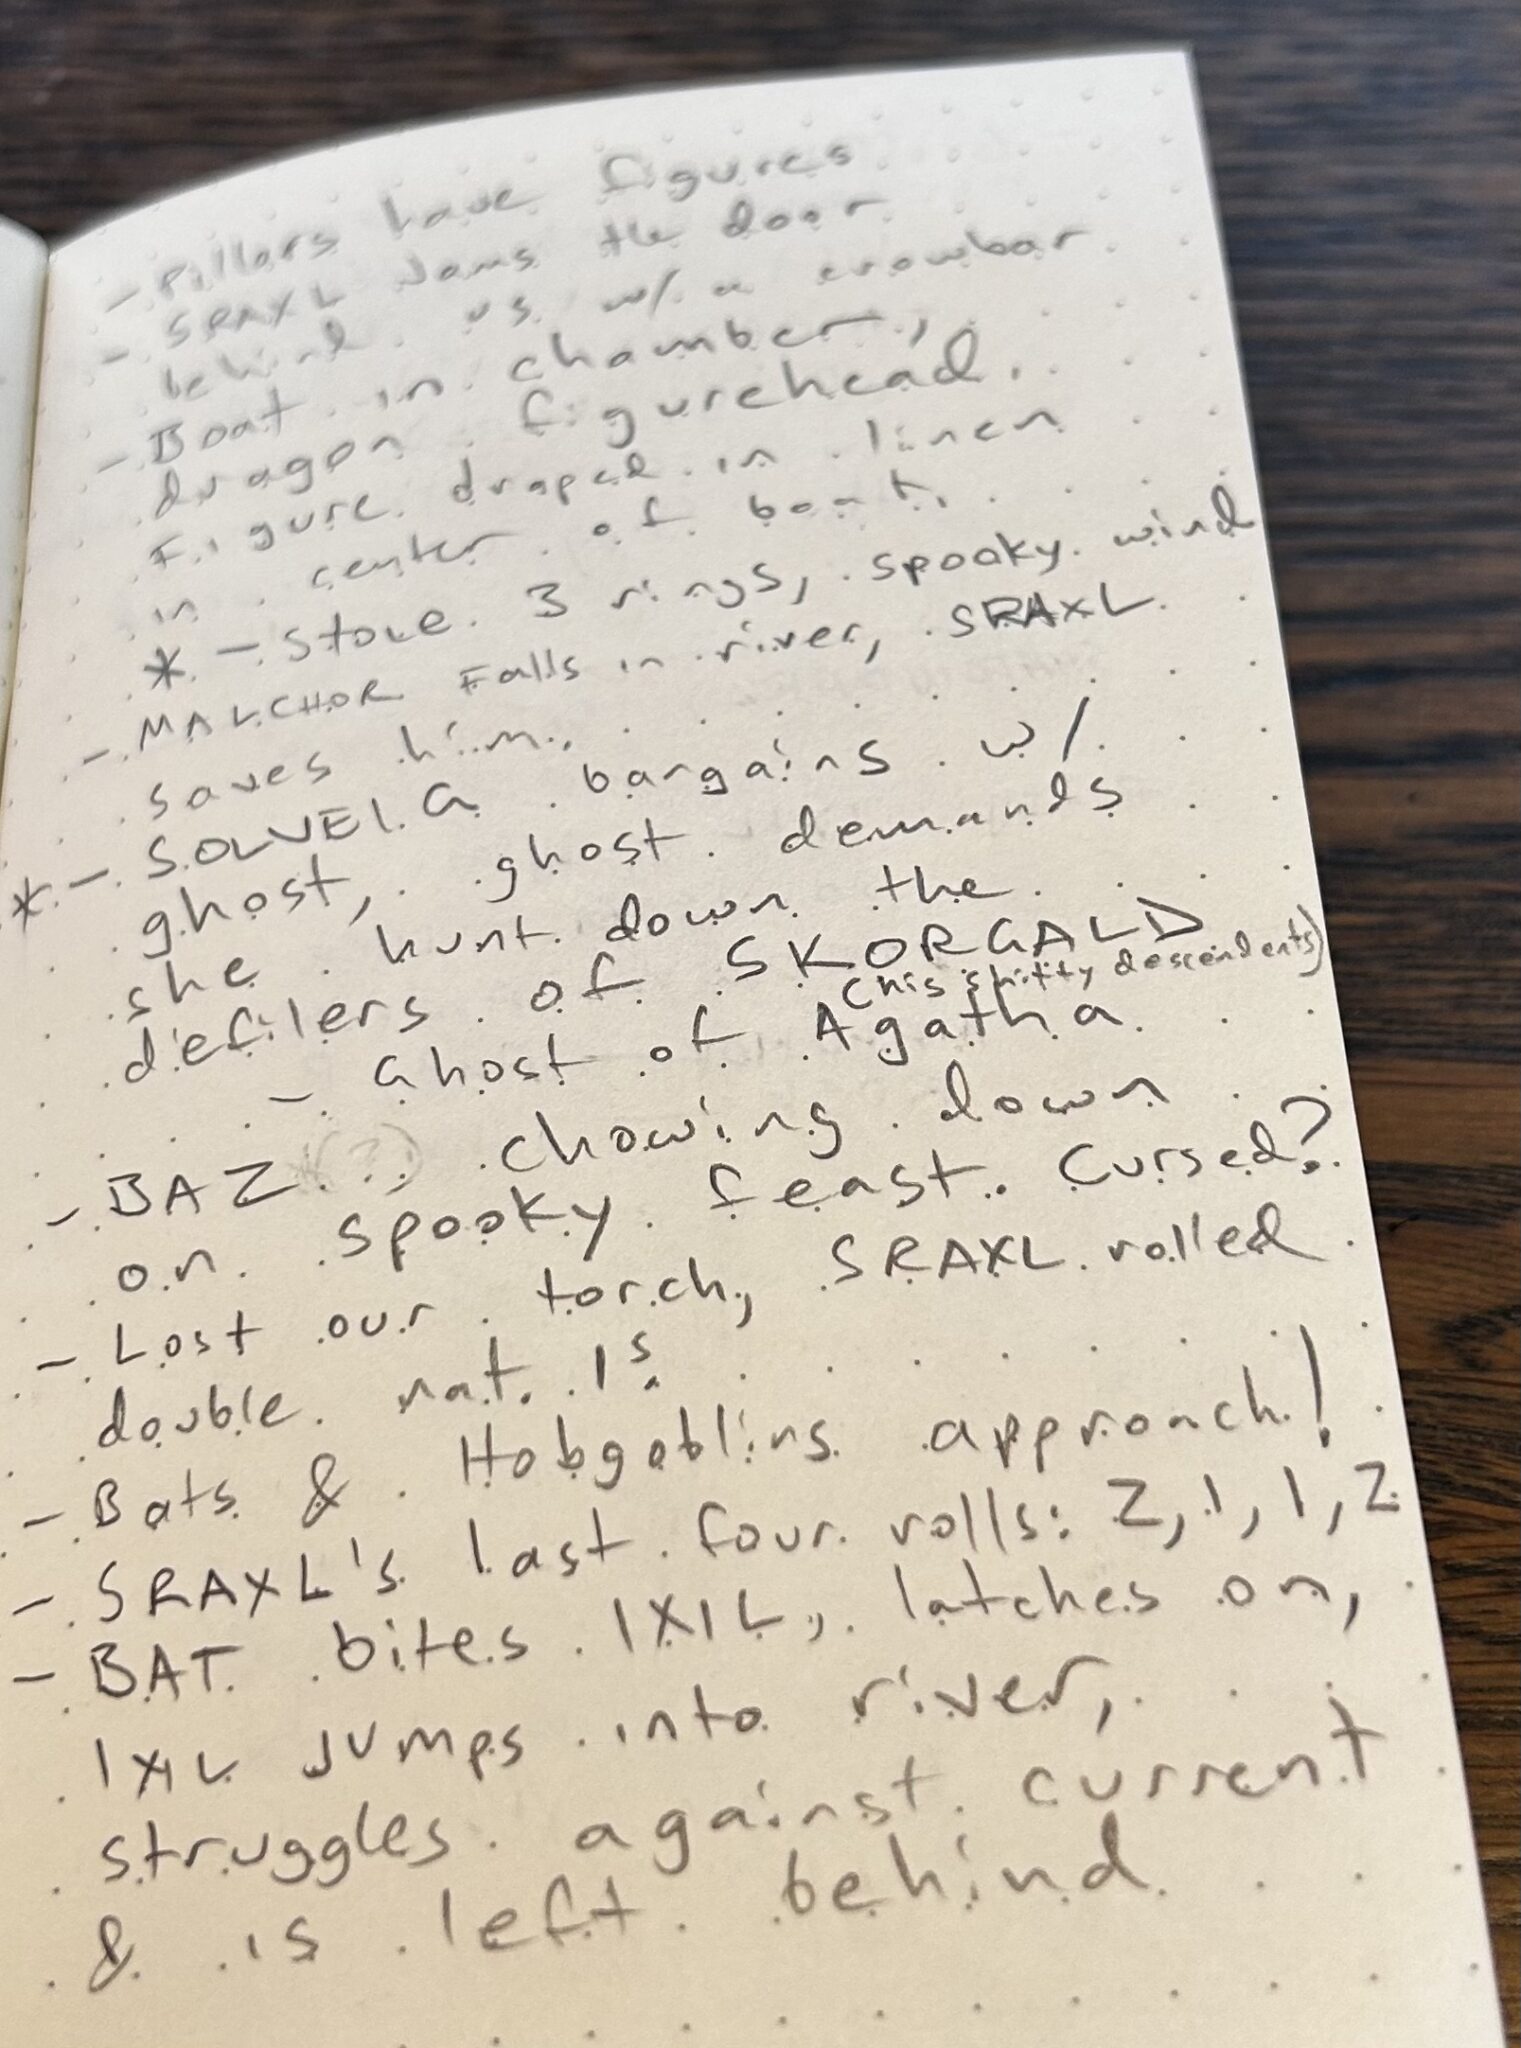 - Pillars have figures
- SRAXL Jams the door
behind us w/ a crowbar
- Boat in chamber,
dragon figurehead.
Figure draped in linen
in center of boat.
* - Stole 3 rings, spooky wind
- MALCHOR Falls in river, SRAXL
saves him.
* - SOLVEIG bargains w/
ghost, ghost demands
she hunt down the
defilers of SKORGALD
(his shitty descendents)
- Ghost of Agatha
- BAZ (?) chowing down
on spooky feast. Cursed?
- Lost our torch, SRAXL rolled
double nat. 1s.
- Bats & Hobgoblins approach!
- SRAXL's last four rolls: 2, 1, 1, 2
- BAT bites IXIL, latches on,
IXIL Jumps into river,
struggles against current
& is left behind